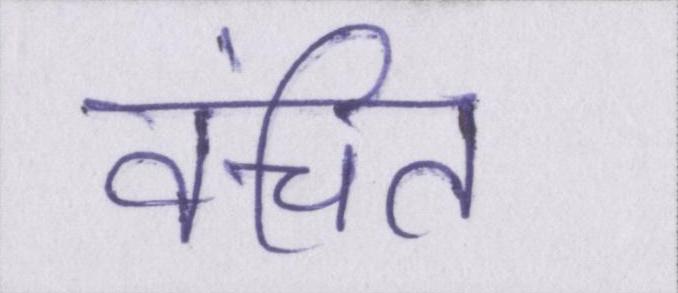 वंचित